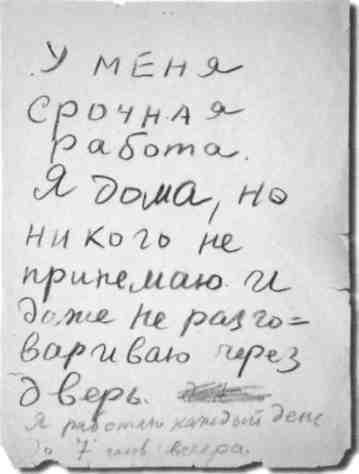 У меня
срочная
работа.
Я дома, но
никого не
принемаю и
даже не разго=
вариваю через
дверь.
Я работаю каждый день
до 7 час. вечера.